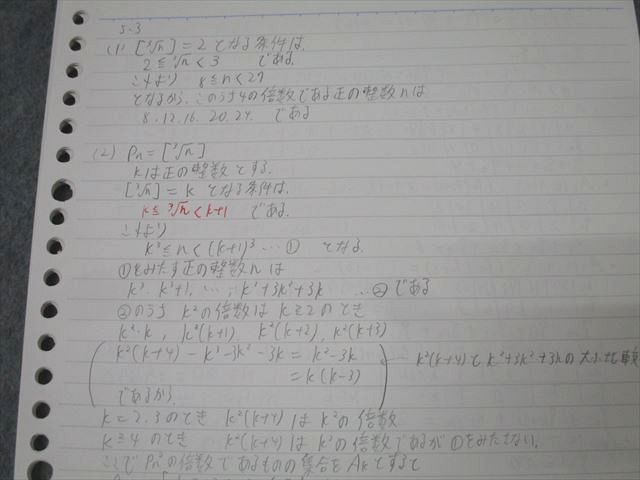 5.3
(1) [³√n] = 2 となる条件は.
2 ≦ ³√n < 3 である.
これより 8 ≦ n < 27
となるから. このうち4の倍数である正の整数nは
8. 12. 16. 20. 24. である
(2) Pn = [³√n]
kは正の整数とする.
[³√n] = k となる条件は.
k ≦ ³√n < k+1 である.
これより
k³ ≦ n < (k+1)³ … ① となる.
①をみたす正の整数nは
k³. k³+1, …, k³+3k²+3k … ② である
②のうち k²の倍数は k≧2 のとき
k²・k, k²(k+1) k²(k+2), k²(k+3)
k²(k+4) - k³-3k²-3k = k²-3k ← k²(k+4)とk³+3k²+3kの大小比較
= k(k-3)
であるから
k = 2.3 のとき k²(k+4) は k²の倍数
k ≧ 4 のとき k²(k+4) は k²の倍数であるが①をみたさない.
ここで Pn²の倍数であるものの集合を Ak とすると